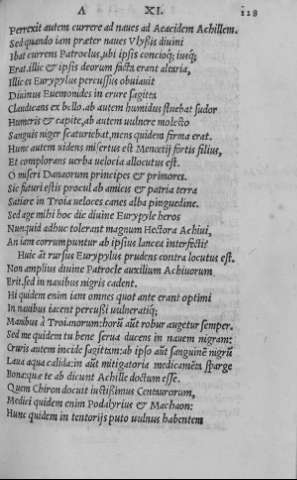 Λ XI. 118
Perrexit autem currere ad naues ad Aeacidem Achillem.
Sed quando iam præter naues Vlyssis diuini
Ibat currens Patroclus, ubi ipsis concioq; iusq;
Erat. illic & ipsis deorum facta erant altaria,
Illic ei Eurypylus percussus obuiauit
Diuinus Euemonides in crure sagitta
Claudicans ex bello. ab autem humidus fluebat sudor
Humeris & capite, ab autem uulnere molesto
Sanguis niger scaturiebat, mens quidem firma erat.
Hunc autem uidens misertus est Menœtij fortis filius,
Et complorans uerba uelocia allocutus est.
O miseri Danaorum principes & primores.
Sic futuri estis procul ab amicis & patria terra
Satiare in Troia ueloces canes alba pinguedine.
Sed age mihi hoc dic diuine Eurypyle heros
Nunquid adhuc tolerant magnum Hectora Achiui,
An iam corrumpuntur ab ipsius lancea interfecti?
Huic aūt rursus Eurypylus prudens contra locutus est.
Non amplius diuine Patrocle auxilium Achiuorum
Erit, sed in nauibus nigris cadent.
Hi quidem enim iam omnes quot ante erant optimi
In nauibus iacent percussi uulneratiq;
Manibus à Troianorum: horū aūt robur augetur semper.
Sed me quidem tu bene serua ducens in nauem nigram:
Cruris autem incide sagittam: ab ipso aūt sanguinē nigrū
Laua aqua calida: in aūt mitigatoria medicamēta sparge
Bona: quæ te ab dicunt Achille doctum esse.
Quem Chiron docuit iustissimus Centaurorum,
Medici quidem enim Podalyrius & Machaon:
Hunc quidem in tentorijs puto uulnus habentem